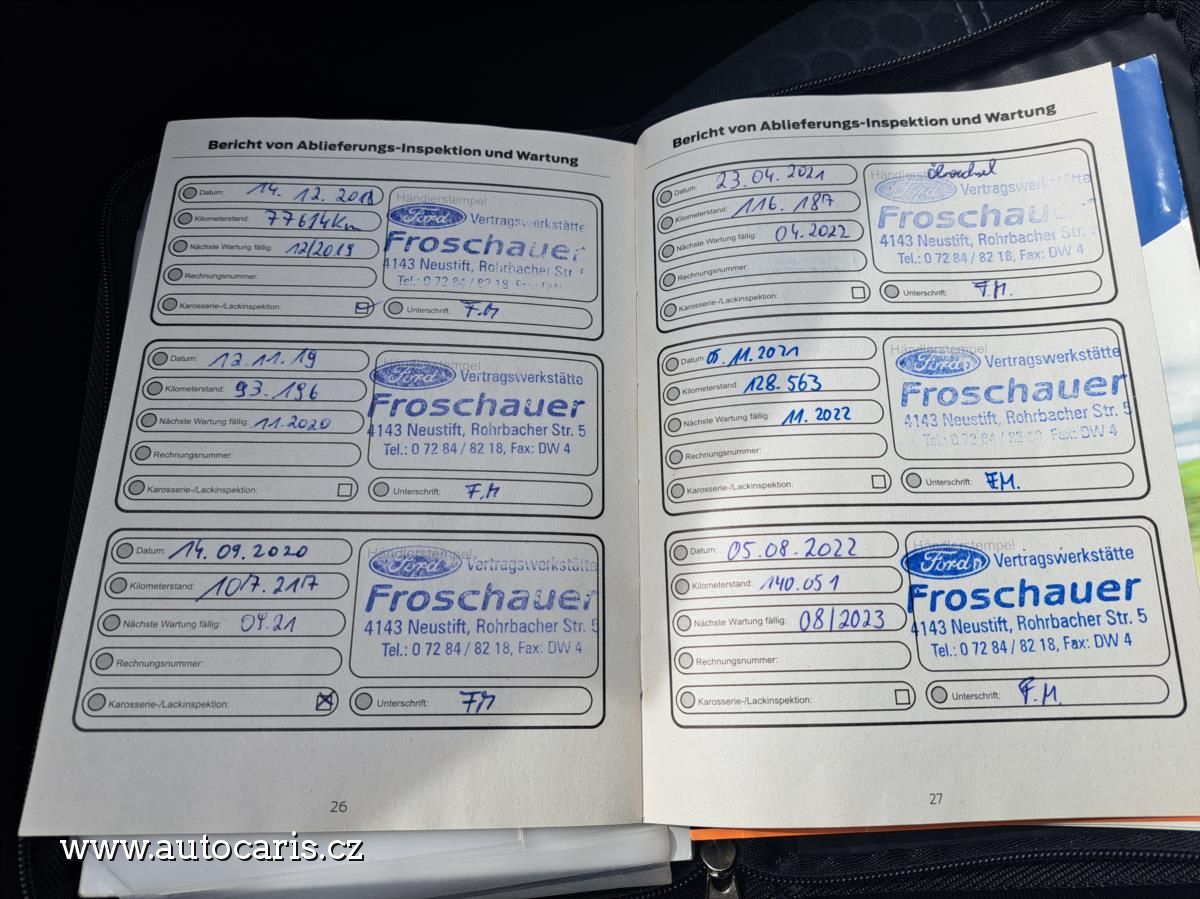 Bericht von Ablieferungs-Inspektion und Wartung
Datum: 14. 12. 2018
Kilometerstand: 77614km
Nächste Wartung fällig: 12/2019
Rechnungsnummer:
Karosserie-/Lackinspektion:
Händlerstempel
Ford Vertragswerkstätte
Froschauer
4143 Neustift, Rohrbacher Str. 5
Tel.: 0 72 84 / 82 18, Fax: DW
Unterschrift: F.M
Datum: 12.11.19
Kilometerstand: 93.196
Nächste Wartung fällig: 11.2020
Rechnungsnummer:
Karosserie-/Lackinspektion:
Händlerstempel
Ford Vertragswerkstätte
Froschauer
4143 Neustift, Rohrbacher Str. 5
Tel.: 0 72 84 / 82 18, Fax: DW 4
Unterschrift: F.M
Datum: 14.09.2020
Kilometerstand: 107.217
Nächste Wartung fällig: 09.21
Rechnungsnummer:
Karosserie-/Lackinspektion:
Händlerstempel
Ford Vertragswerkstätte
Froschauer
4143 Neustift, Rohrbacher Str. 5
Tel.: 0 72 84 / 82 18, Fax: DW 4
Unterschrift: FM
26
Bericht von Ablieferungs-Inspektion und Wartung
Datum: 23.04.2021
Kilometerstand: 116.187
Nächste Wartung fällig: 04.2022
Rechnungsnummer:
Karosserie-/Lackinspektion:
Händlerstempel Ölwechsel
Ford Vertragswerkstätte
Froschauer
4143 Neustift, Rohrbacher Str. 5
Tel.: 0 72 84 / 82 18, Fax: DW 4
Unterschrift: F.M.
Datum: 05.11.2021
Kilometerstand: 128.563
Nächste Wartung fällig: 11.2022
Rechnungsnummer:
Karosserie-/Lackinspektion:
Händlerstempel
Ford Vertragswerkstätte
Froschauer
4143 Neustift, Rohrbacher Str. 5
Tel.: 0 72 84 / 82 18, Fax: DW 4
Unterschrift: F.M.
Datum: 05.08.2022
Kilometerstand: 140.051
Nächste Wartung fällig: 08/2023
Rechnungsnummer:
Karosserie-/Lackinspektion:
Händlerstempel
Ford Vertragswerkstätte
Froschauer
4143 Neustift, Rohrbacher Str. 5
Tel.: 0 72 84 / 82 18, Fax: DW 4
Unterschrift: F.M.
27
www.autocaris.cz